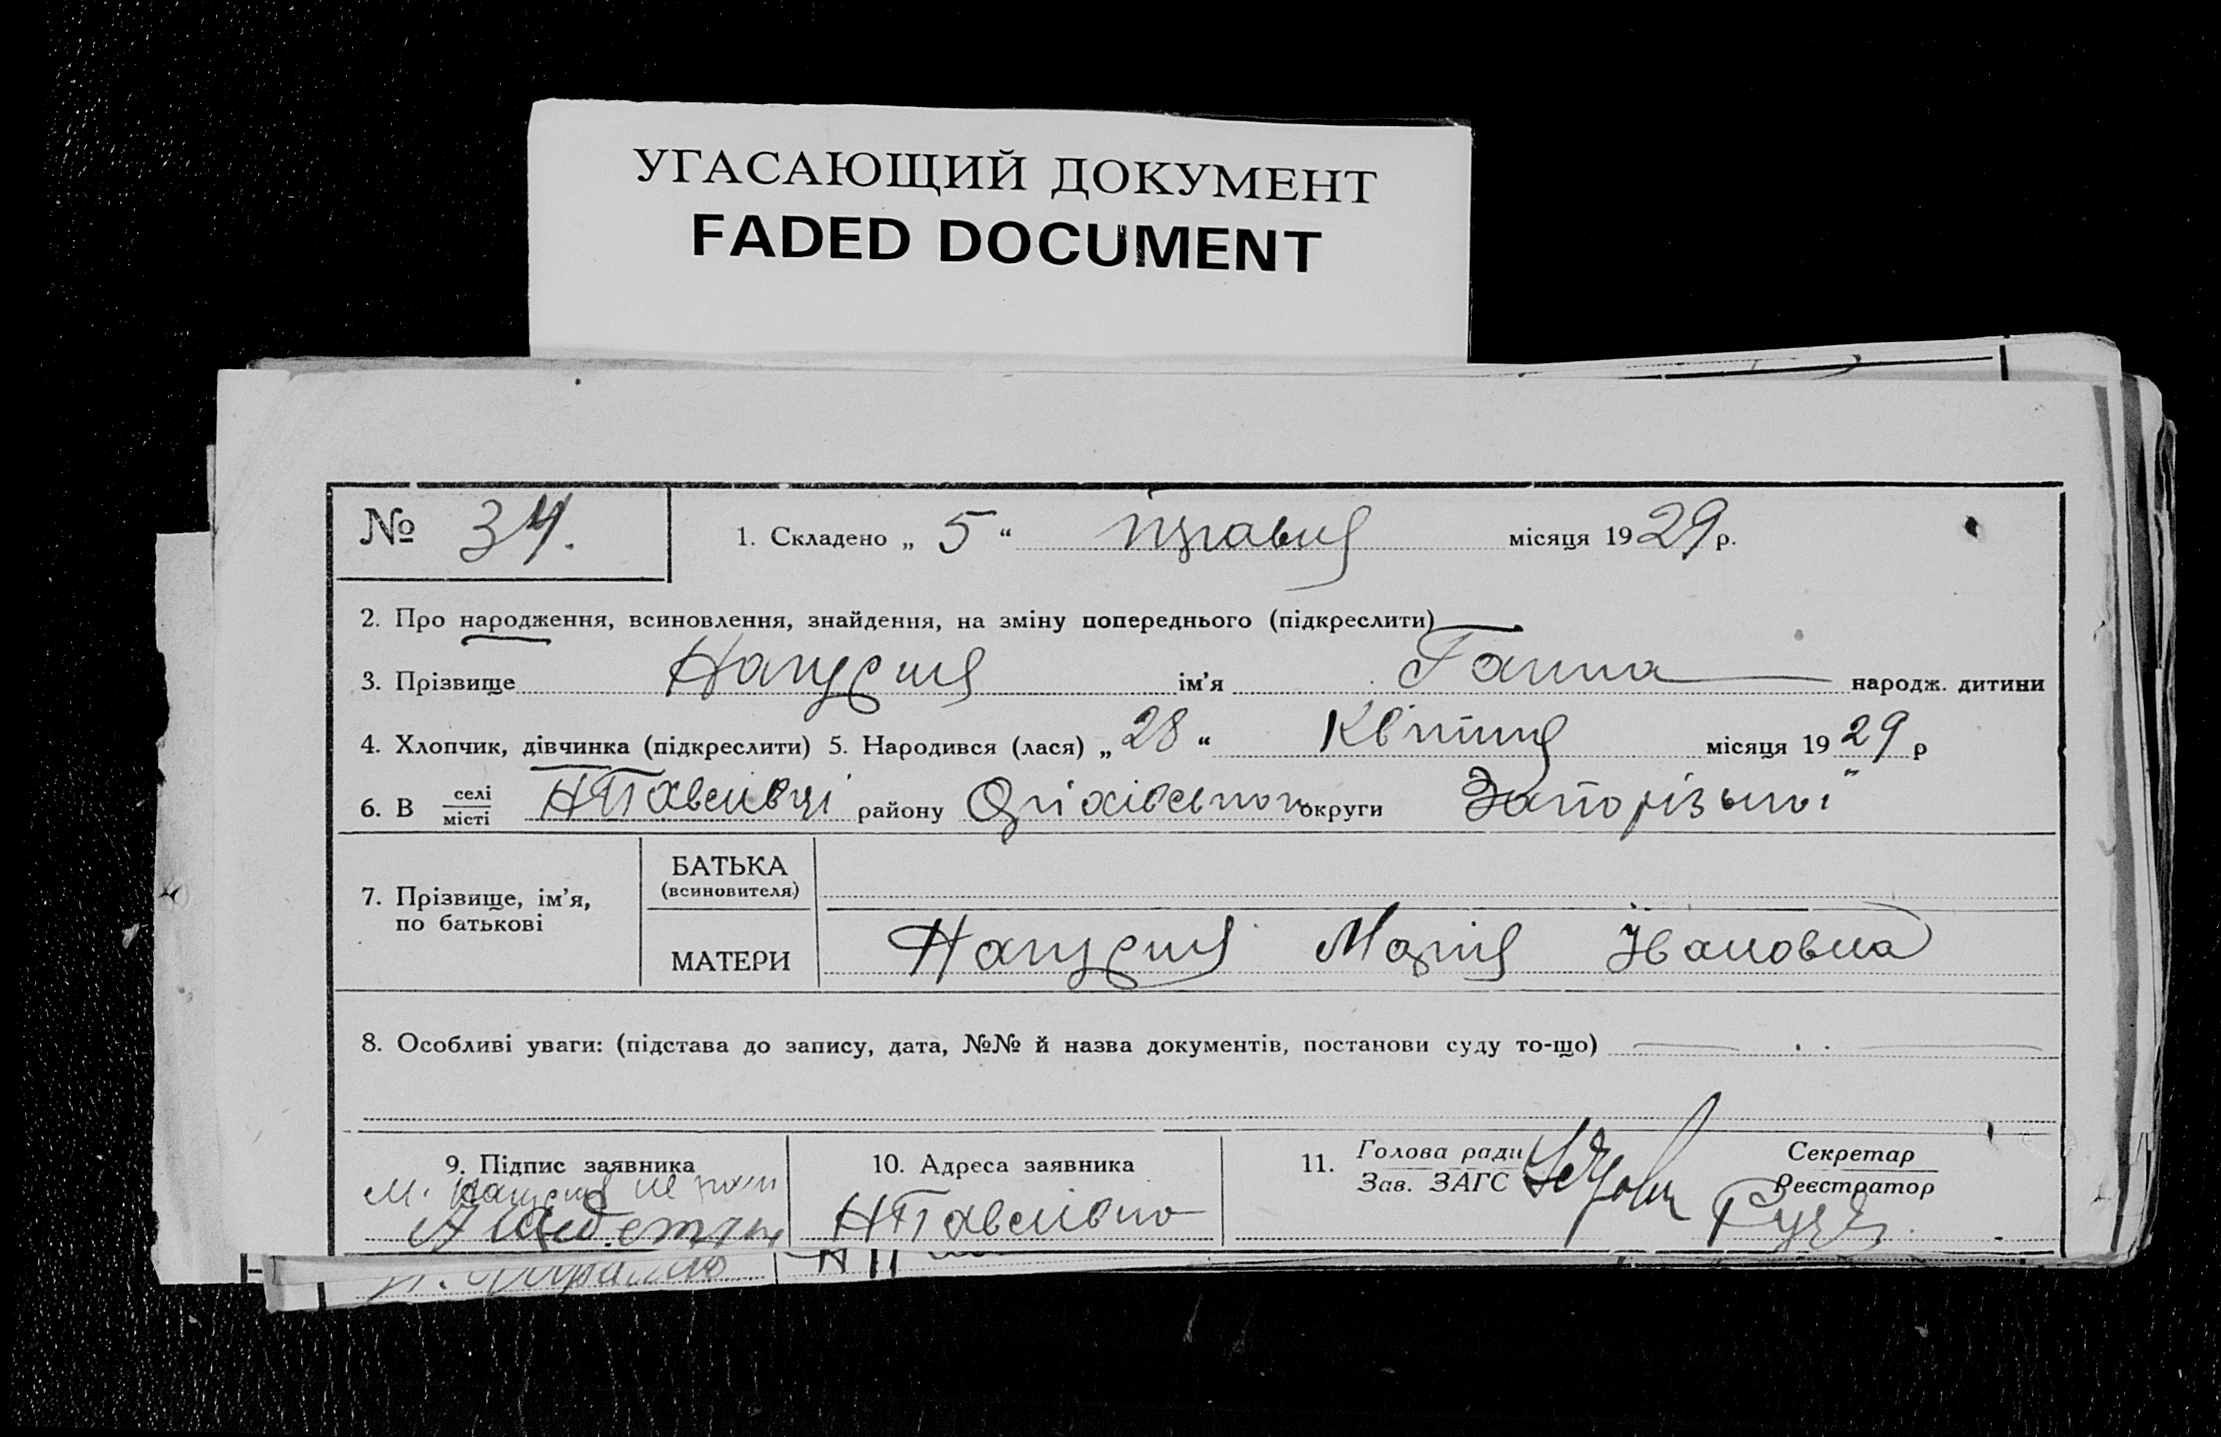 УГАСАЮЩИЙ ДОКУМЕНТ
FADED DOCUMENT
№ 34. 1. Складено „ 5 “ травня місяця 1929 р.
2. Про народження, всиновлення, знайдення, на зміну попереднього (підкреслити)
3. Прізвище ім’я Ганна народж. дитини
4. Хлопчик, дівчинка (підкреслити) 5. Народився (лася) „ 28 “ Квітня місяця 1929 р
6. В селі/місті Н Павлівці району округи Запорізької
7. Прізвище, ім’я, по батькові
БАТЬКА
(всиновителя)
МАТЕРИ Марія Івановна
8. Особливі уваги: (підстава до запису, дата, №№ й назва документів, постанови суду то-що)
9. Підпис заявника
10. Адреса заявника
Н Павлівка
11. Голова ради
Зав. ЗАГС
Секретар
Реєстратор